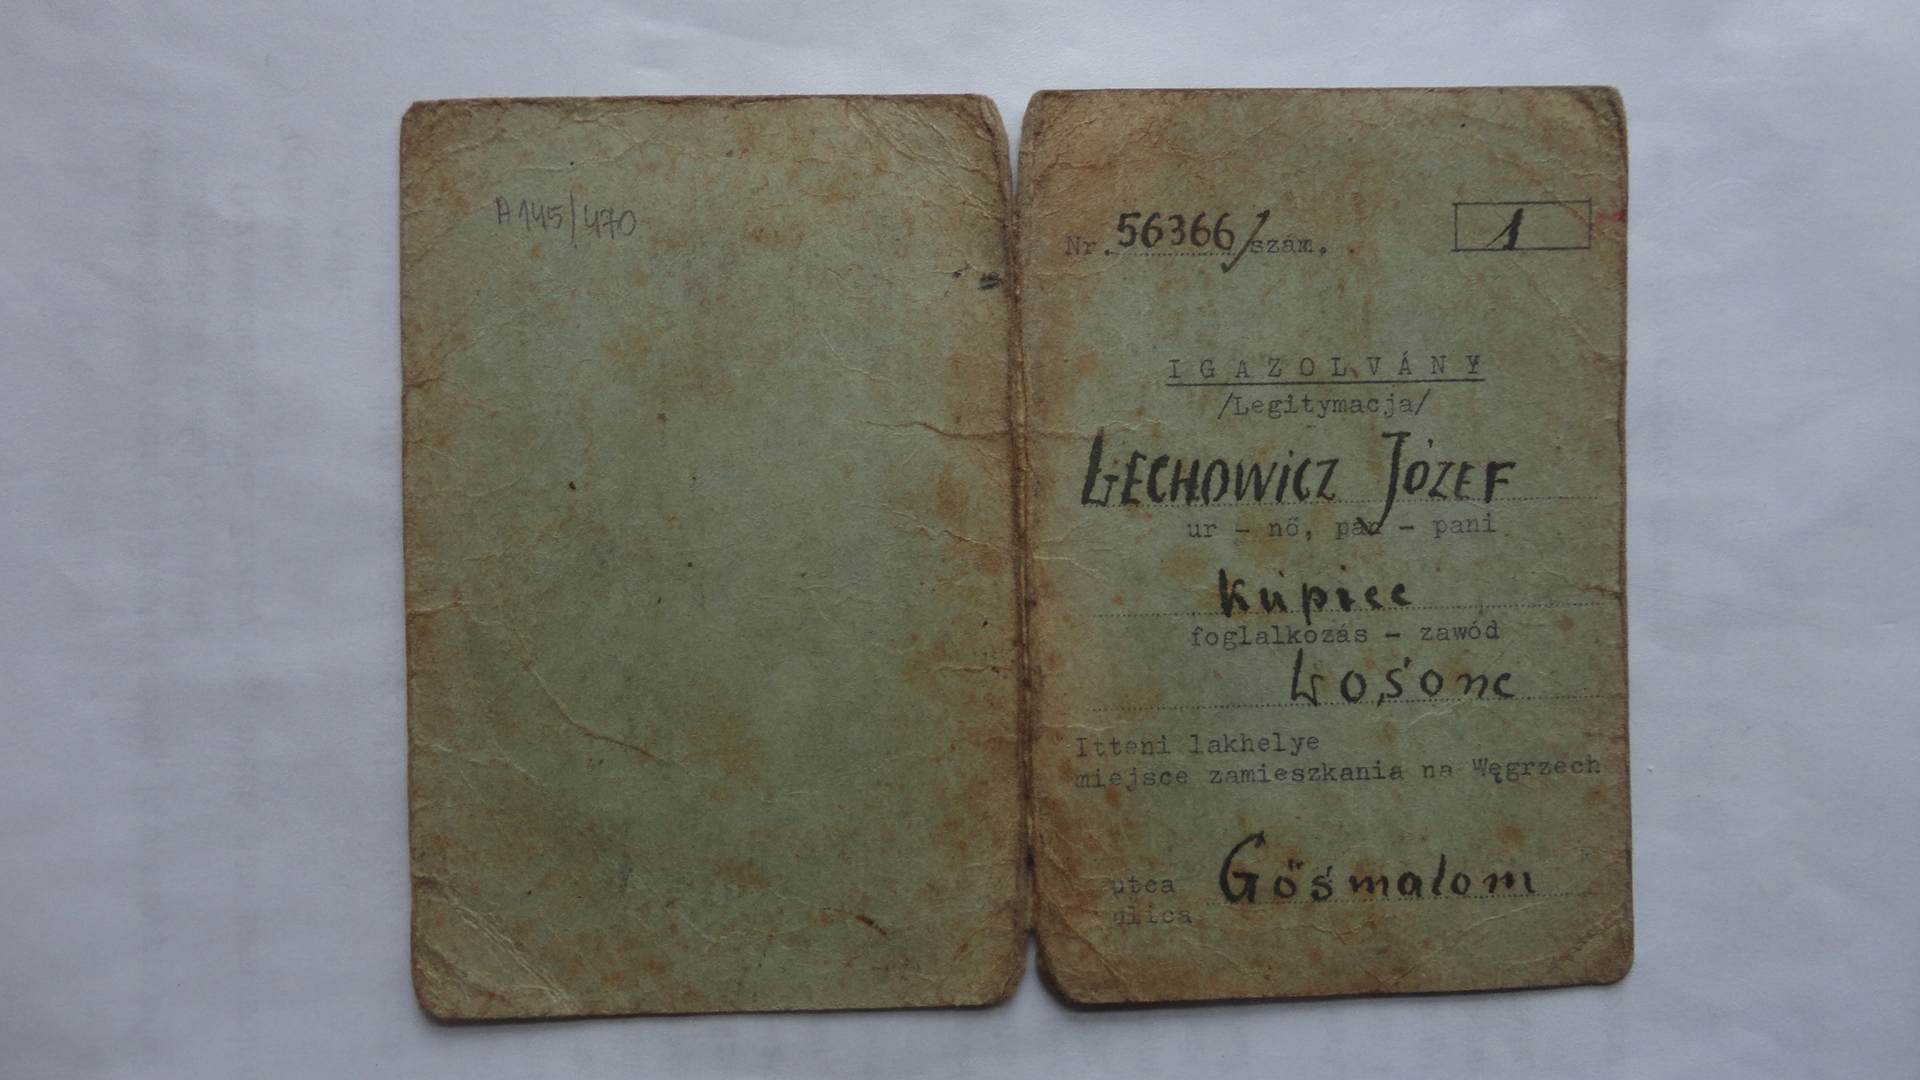 A 145/470
Nr. 56366/szám.
1
IGAZOLVÁNY
/Legitymacja/
LECHOWICZ JÓZEF
ur - nő, pan - pani
Kupiec
foglalkozás - zawód
Lośonc
Itteni lakhelye
miejsce zamieszkania na Węgrzech
utca Gőśmalom
ulica